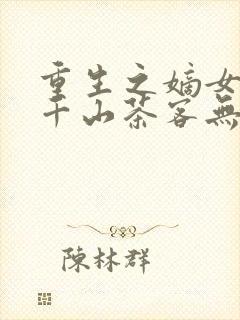 重生之嫡女
千山茶客無
陳林群